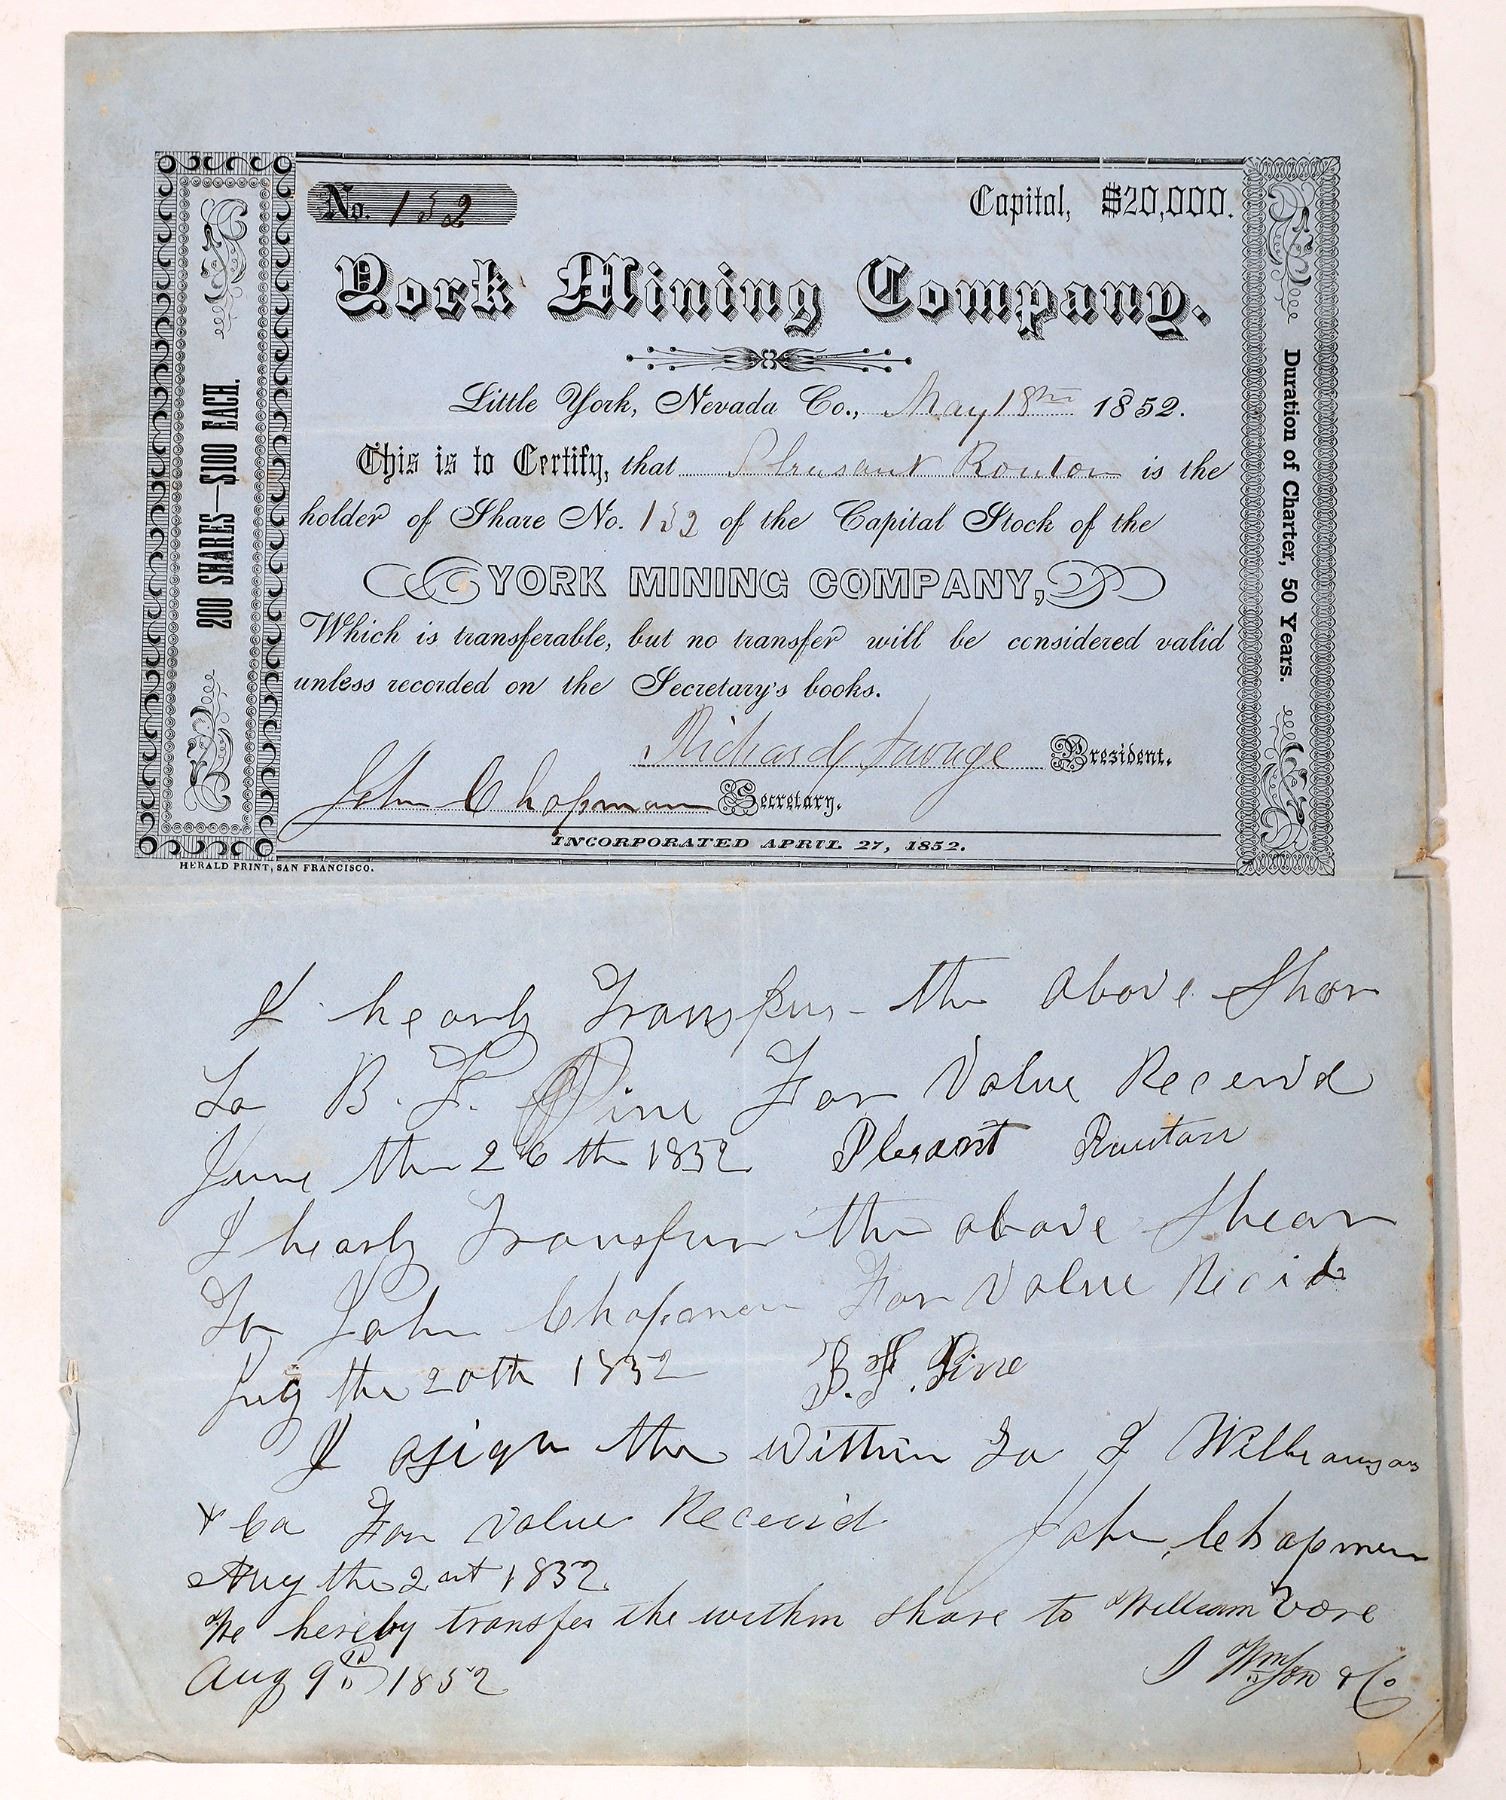 No. 132
Capital, $20,000.
York Mining Company.
Little York, Nevada Co., May 18th 1852.
This is to Certify, that Pleasant Routon is the
holder of Share No. 132 of the Capital Stock of the
YORK MINING COMPANY,
Which is transferable, but no transfer will be considered valid
unless recorded on the Secretary's books.
Richard Savage President.
John Chapman Secretary.
INCORPORATED APRIL 27, 1852.
HERALD PRINT, SAN FRANCISCO.
200 SHARES—$100 EACH.
Duration of Charter, 50 Years.
I hearby Transfur the above Shar
To B. F. Pine For Value Receivd
June the 26th 1852 Plesant Routan
I hearby Transfur the above Shear
To John Chapman For Value Recid
the 20th 1852 B. F. Pine
I asign the within To I
& Co For value Receivid John Chapman
Aug the 2 1852
We hereby transfer the within share to William Vore
Aug 9th 1852 & Co